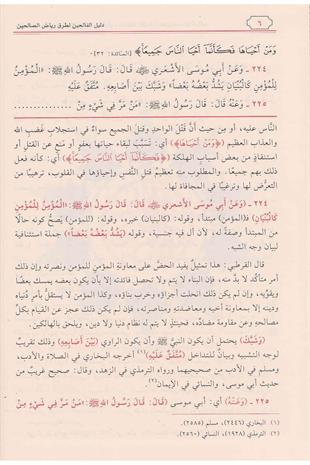 ٦ دليل الفالحين لطرق رياض الصالحين
وَمَنْ أَحْيَاهَا فَكَأَنَّمَآ أَحْيَا النَّاسَ جَمِيعاً﴾ [المائدة: ٣٢].
٢٢٤ ـ وَعَنْ أَبي موسَى الأَشْعَرِي ﷺ قَالَ: قَالَ رَسُولُ اللَّهِ ﷺ: «الْمُؤْمِنُ
لِلْمُؤْمِنِ كَالْبُنْيَانِ يَشُدُّ بَعْضُهُ بَعْضاً» وَشَبَّكَ بَيْنَ أَصَابِعِهِ. مُتَّفَقٌ عَلَيْهِ.
٢٢٥ ـ وَعَنْهُ قَالَ: قَالَ رَسُولُ اللَّهِ ﷺ: «مَنْ مَرَّ فِي شَيْءٍ مِنْ ...............
النَّاس عليه، أو من حيث أنّ قَتْلَ الواحد وقتلَ الجميع سواءٌ في استجلاب غضب الله
والعذاب العظيم (﴿وَمَنْ أَحْيَاهَا﴾) أي: تَسَبَّبَ لبقاء حياتها بعفو أو منع عن القتل أو
استنقاذٍ من بعض أسباب الهلكة (﴿فَكَأَنَّمَآ أَحْيَا النَّاسَ جَمِيعاً﴾) أي: كأنه فعل
ذلك بهم جميعًا. والمطلوب منه تعظيمُ قتل النَّفْس وإحياؤها في القلوب، ترهيبًا من
التعرُّض لها وترغيبًا في المحافاة لها.
٢٢٤ ـ (وَعَنْ أَبي مُوسَى الأشعري ﷺ قال: قَالَ رَسُولُ اللَّهِ ﷺ: المُؤْمِنُ لِلْمُؤْمِنِ
كَالْبُنْيَانِ) فـ(المؤمن) مبتدأ، وقوله: (كالبنيان) خبره، وقوله: (للمؤمن) يَصِحُّ كونه حالًا
من المبتدأ وصفة له، لأن أل فيه جنسية، وقوله (يَشُدُّ بَعْضُهُ بَعْضاً) جملة استئنافية
لبيان وجه الشبه.
قال القرطبي: هذا تمثيلٌ يفيد الحضَّ على معاونةِ المؤمن للمؤمن ونصرته وإن ذلك
أمر متأكد لا بدَّ منه، فإن البناء لا يتم ولا تحصل فائدته إلا بأن يكون بعضه يمسك بعضًا
ويقوِّيه، وإن لم يكن ذلك انحلت أجزاؤه وخرب بناؤه، وكذا المؤمن لا يستقلُّ بأمر دُنياه
ودينه إلا بمعاونة أخيه ومعاضدته ومناصرته، فإن لم يكن ذلك عجز عن القيام بكلِّ
مصالحه وعن مقاومة مضادّه، فحينئذٍ لا يتم له نظام دنيا ولا دين، ويلحق بالهالكين.
(وَشَبَّكَ) يحتمل أن يكون النبيَّ ﷺ وأن يكون الراوي (بَيْنَ أَصَابِعِهِ) وذلك تقريبٌ
لوجه التشبيه وبيانٌ للتداخل (مُتَّفَقٌ عَلَيْهِ)(١) أخرجه البخاري في الصلاة والأدب،
ومسلم في الأدب من صحيحيهما ورواه الترمذي في الزهد، وقال: صحيح غريبٌ من
حديث أبي موسى، والنسائي في الإيمان(٢).
٢٢٥ ـ (وَعَنْهُ) أي: أبي موسى (قَالَ: قَالَ رَسُولُ اللَّهِ ﷺ: مَنْ مَرَّ فِي شَيْءٍ مِنْ
(١) البخاري (٢٤٤٦)، مسلم (٢٥٨٥).
(٢) الترمذي (١٩٢٨)، النسائي (٢٥٦٠).